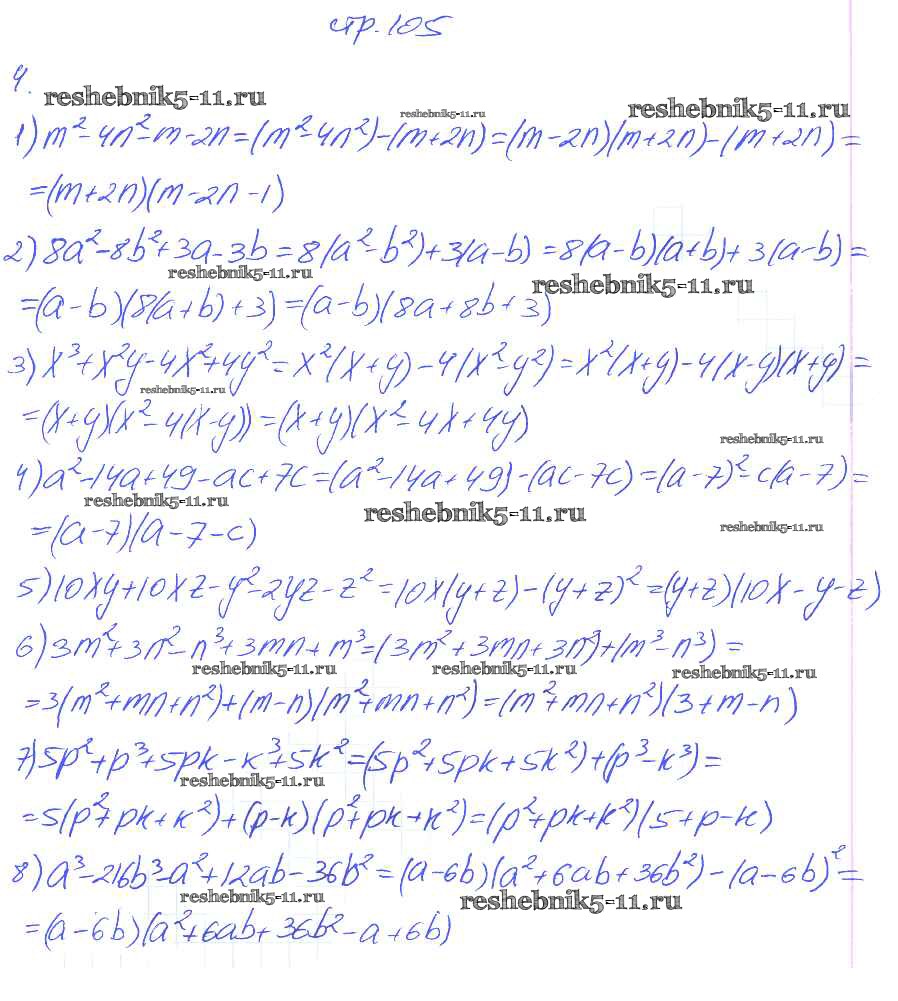 стр. 105
4.
reshebnik5-11.ru
reshebnik5-11.ru
reshebnik5-11.ru
1) m²-4n²-m-2n=(m²-4n²)-(m+2n)=(m-2n)(m+2n)-(m+2n)=
=(m+2n)(m-2n-1)
2) 8a²-8b²+3a-3b=8(a²-b²)+3(a-b)=8(a-b)(a+b)+3(a-b)=
reshebnik5-11.ru
reshebnik5-11.ru
=(a-b)(8(a+b)+3)=(a-b)(8a+8b+3)
3) x³+x²y-4x²+4y²=x²(x+y)-4(x²-y²)=x²(x+y)-4(x-y)(x+y)=
reshebnik5-11.ru
=(x+y)(x²-4(x-y))=(x+y)(x²-4x+4y)
reshebnik5-11.ru
4) a²-14a+49-ac+7c=(a²-14a+49)-(ac-7c)=(a-7)²-c(a-7)=
reshebnik5-11.ru
reshebnik5-11.ru
reshebnik5-11.ru
=(a-7)(a-7-c)
5) 10xy+10xz-y²-2yz-z²=10x(y+z)-(y+z)²=(y+z)(10x-y-z)
6) 3m²+3n²-n³+3mn+m³=(3m²+3mn+3n²)+(m³-n³)=
reshebnik5-11.ru
reshebnik5-11.ru
reshebnik5-11.ru
=3(m²+mn+n²)+(m-n)(m²+mn+n²)=(m²+mn+n²)(3+m-n)
7) 5p²+p³+5pk-k³+5k²=(5p²+5pk+5k²)+(p³-k³)=
reshebnik5-11.ru
=5(p²+pk+k²)+(p-k)(p²+pk+k²)=(p²+pk+k²)(5+p-k)
8) a³-216b³-a²+12ab-36b²=(a-6b)(a²+6ab+36b²)-(a-6b)²=
reshebnik5-11.ru
reshebnik5-11.ru
=(a-6b)(a²+6ab+36b²-a+6b)